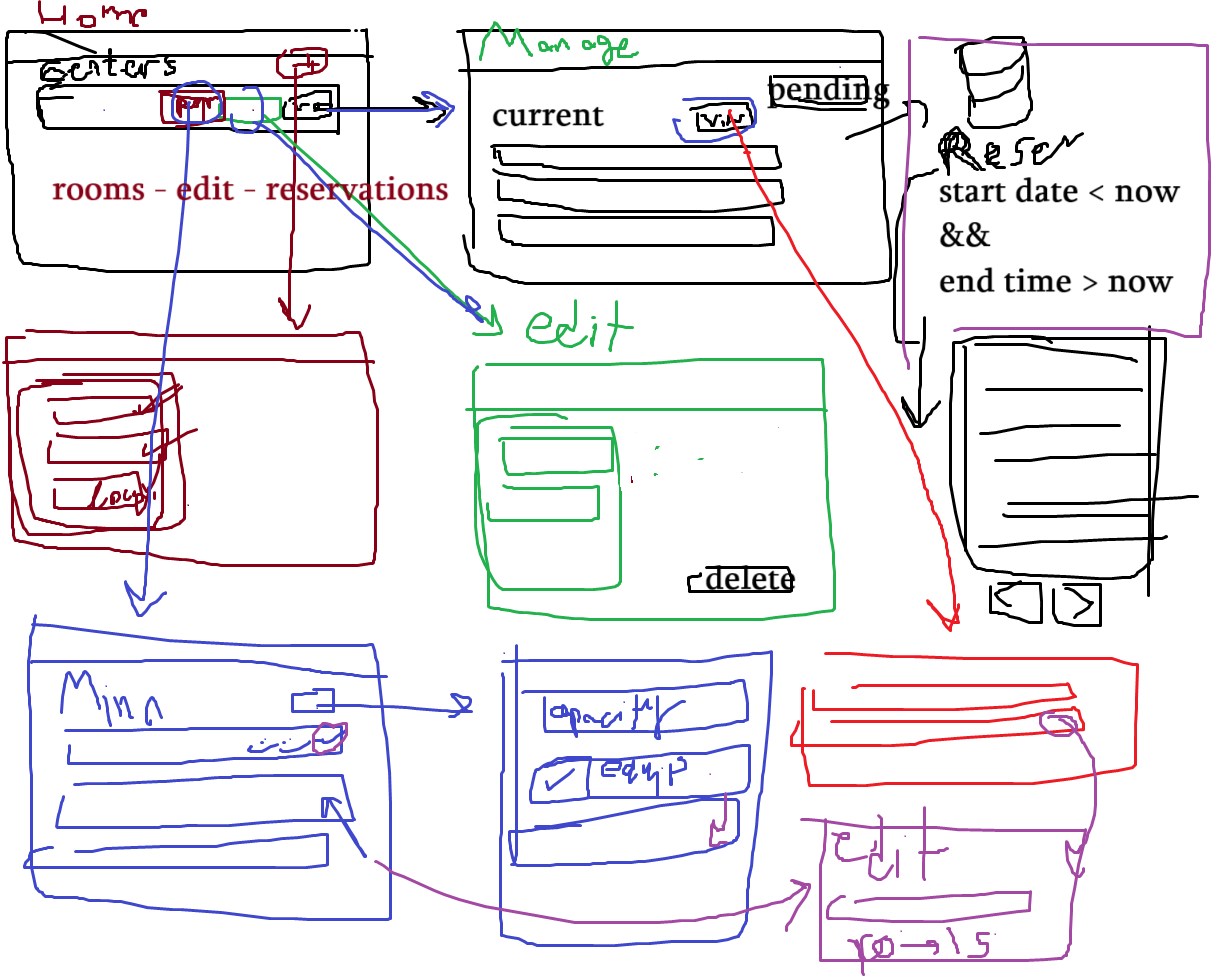 Home
Centers
+
rooms - edit - reservations
Manage
pending
current
view
Reser
start date < now
&&
end time > now
edit
delete
Capacity
Equip
edit